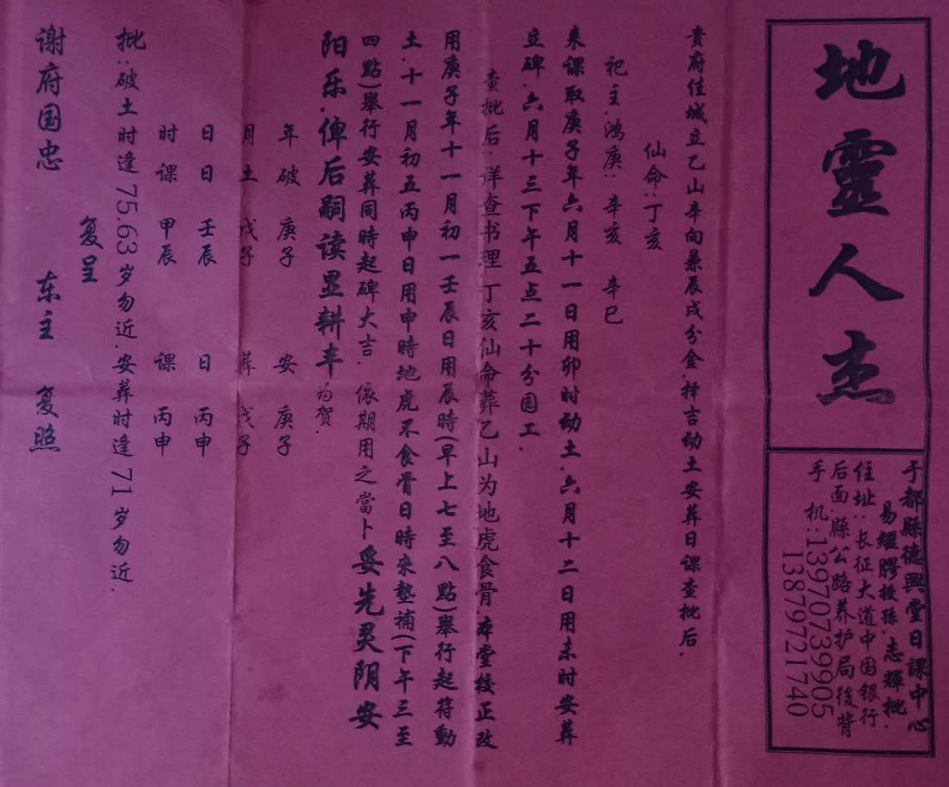 地靈人杰
于都縣德興堂日課中心
易耀膠授孫:志輝批.
住址:长征大道中国銀行
后面.縣公路养护局後背
手 机:13970739905
13879721740
貴府佳城立乙山辛向兼辰戌分金.择吉动土安葬日课查批后.
仙命:丁亥
祀主.鸿庚:辛亥 辛巳
来课取庚子年六月十一日用卯时动土.六月十二日用未时安葬
立碑.六月十三下午五点二十分园工.
查批后:详查书理.丁亥仙命葬乙山为地虎食骨.本堂校正改
用庚子年十一月初一壬辰日用辰時(早上七至八點)舉行起符動
土.十一月初五丙申日用申時地虎不食骨日時来墊補(下午三至
四點)舉行安葬同時起碑大吉.依期用之當卜妥先灵阴安
阳乐.俾后嗣读显耕丰为賀.
年破 庚子 安 庚子
月土 戊子 葬 戊子
日日 壬辰 日 丙申
时課 甲辰 課 丙申
批:破土时逢75.63岁勿近.安葬时逢71岁勿近.
复呈
谢府国忠 东主 复照